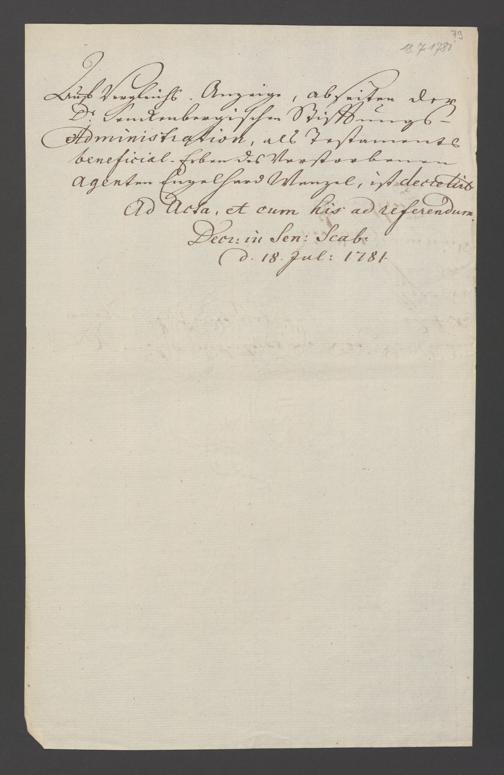 79
18.7.1781
Auf Vergleichs-Anzeige, abseiten der
Dr. Senckenbergischen Stiftungs-
Administration, als Testaments
beneficial-Erben des Verstorbenen
Agenten Engelhard Wenzel, ist decretirt
Ad Acta, et cum his ad referendum.
Decr: in Sen: Scab:
d. 18. Jul: 1781.